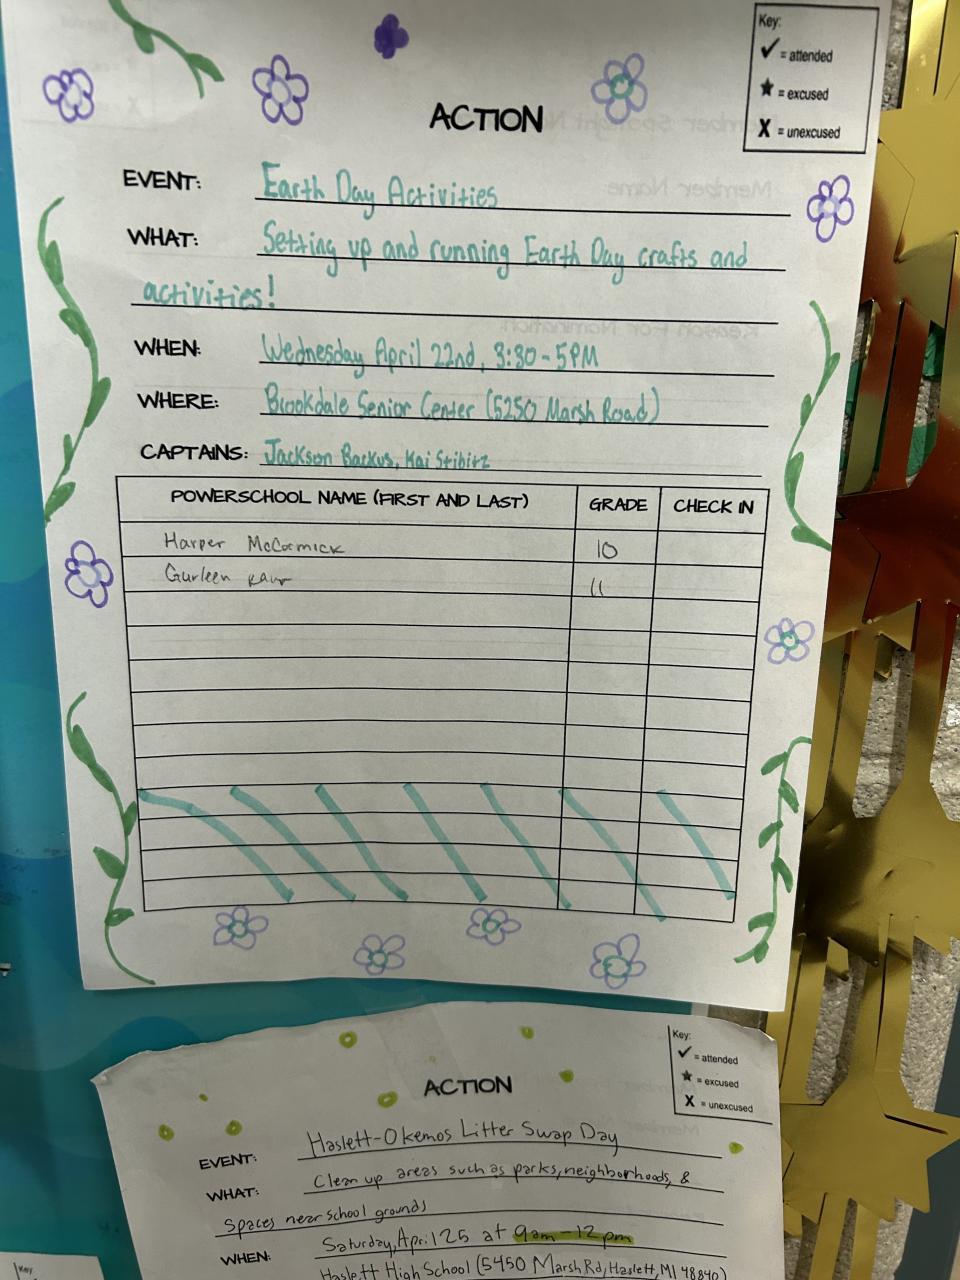 Key:
✓ = attended
★ = excused
X = unexcused
ACTION
EVENT: Earth Day Activities
WHAT: Setting up and running Earth Day crafts and
activities!
WHEN: Wednesday April 22nd, 3:30-5PM
WHERE: Brookdale Senior Center (5250 Marsh Road)
CAPTAINS: Jackson Backus, Kai Stibitz
POWERSCHOOL NAME (FIRST AND LAST) GRADE CHECK IN
Harper McCormick 10
Gurleen Kaur 11
Key:
✓ = attended
★ = excused
X = unexcused
ACTION
EVENT: Haslett-Okemos Litter Swap Day
WHAT: Clean up areas such as parks, neighborhoods, &
spaces near school grounds
WHEN: Saturday, April 25 at 9am-12pm
Haslett High School (5450 Marsh Rd, Haslett, MI 48840)
Key: